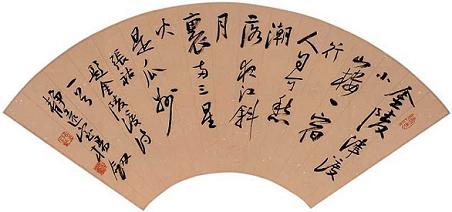 金陵津渡
小
山楼一宿
行
人自可愁
潮
落夜江斜
月
裏两三星
火
是瓜州
張祜
題金陵渡诗
一首